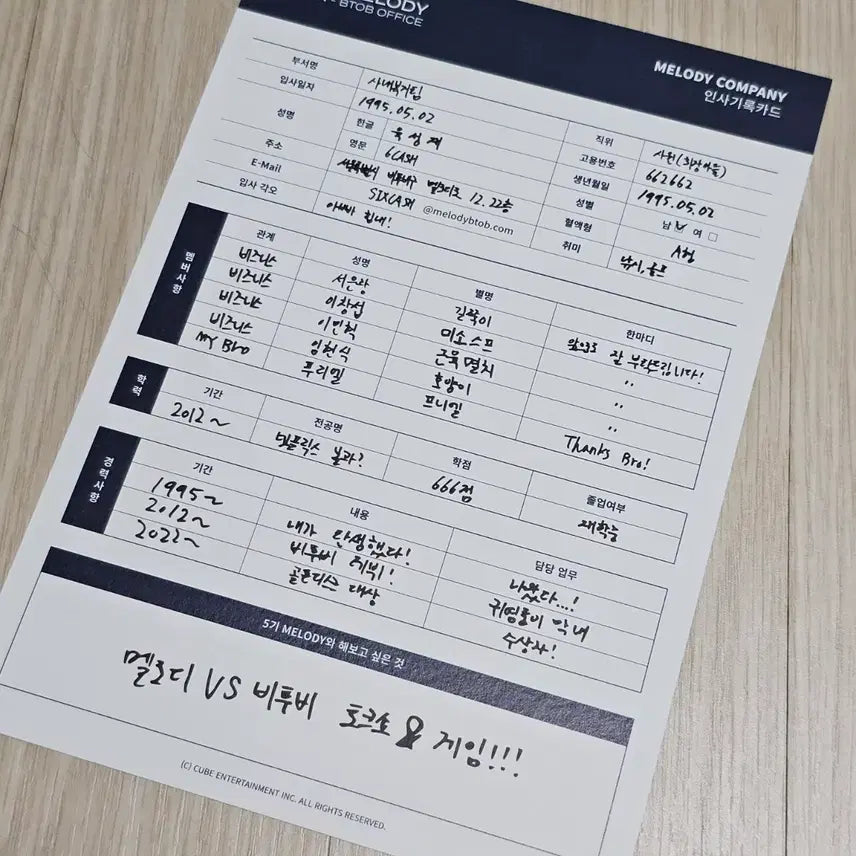 MELODY
BTOB OFFICE
MELODY COMPANY
인사기록카드
부서명 사내복지팀 직위 사원(회장아들)
입사일자 1995.05.02 고용번호 662662
성명 한글 육성재 생년월일 1995.05.02
영문 6CA재 성별 남 여
주소 비투비구 멜로디로 12. 22층 혈액형 A형
E-Mail SIXCA재 @melodybtob.com 취미 낚시, 골프
입사 각오 아빠 힘내!
멤버사항
관계 성명 별명 한마디
비즈니스 서은광 길쭉이 앞으로 잘 부탁드립니다!
비즈니스 이창섭 미소스프 〃
비즈니스 이민혁 근육멸치 〃
비즈니스 임현식 호양이 〃
MY Bro 푸리엘 프니엘 Thanks Bro!
학력
기간 전공명 학점 졸업여부
2012~ 넷플릭스 볼과? 666점 재학중
경력사항
기간 내용 담당 업무
1995~ 내가 탄생했다! 나왔다...!
2012~ 비투비 데뷔! 귀염둥이 막내
2022~ 골든디스크 대상 수상자!
5기 MELODY와 해보고 싶은 것
멜로디 VS 비투비 토크쇼 & 게임!!!
(C) CUBE ENTERTAINMENT INC. ALL RIGHTS RESERVED.